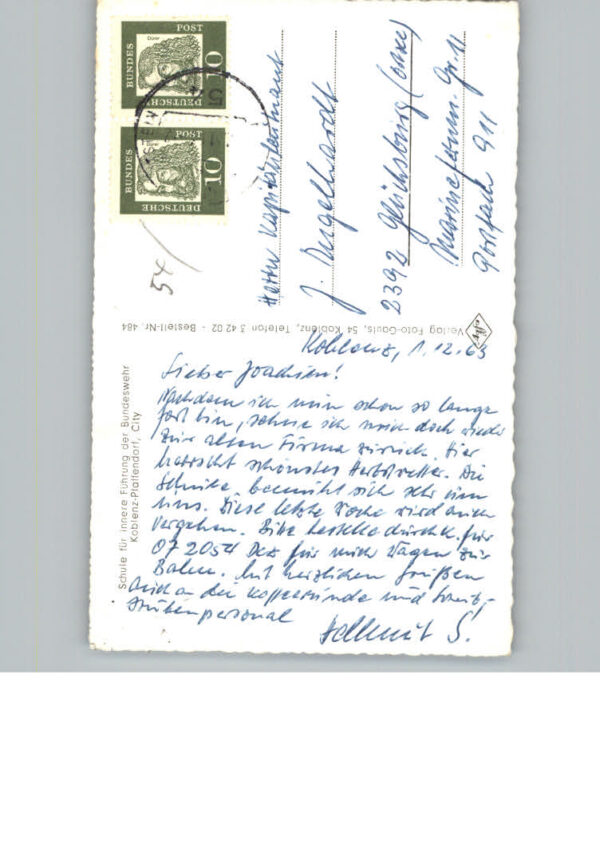 Schule für innere Führung der Bundeswehr
Koblenz-Pfaffendorf, City
Koblenz, 1.12.63
Lieber Joachim!
Nachdem ich nun schon so lange
fort bin, sehne ich mich doch wieder
zur alten Firma zurück. Hier
herrscht schönstes Herbstwetter. Die
Schule bemüht sich sehr um
uns. Diese letzte Woche wird auch
vergehen. Bitte bestelle für
07 2054 Dez für mich Wagen zur
Bahn. Mit herzlichen Grüßen
auch an die Kafferunde und
stubenpersonal
Hellmut S.
Verlag Foto-Gauls, 54 Koblenz, Telefon 3 42 02 - Bestell-Nr. 484
Herrn Kapitänleutnant
J.
2392 Glücksburg (Ostsee)
Marinefernm. Gr. 11
Postfach 911
54/
DEUTSCHE
BUNDES
POST
10
Dürer
DEUTSCHE
BUNDES
POST
10